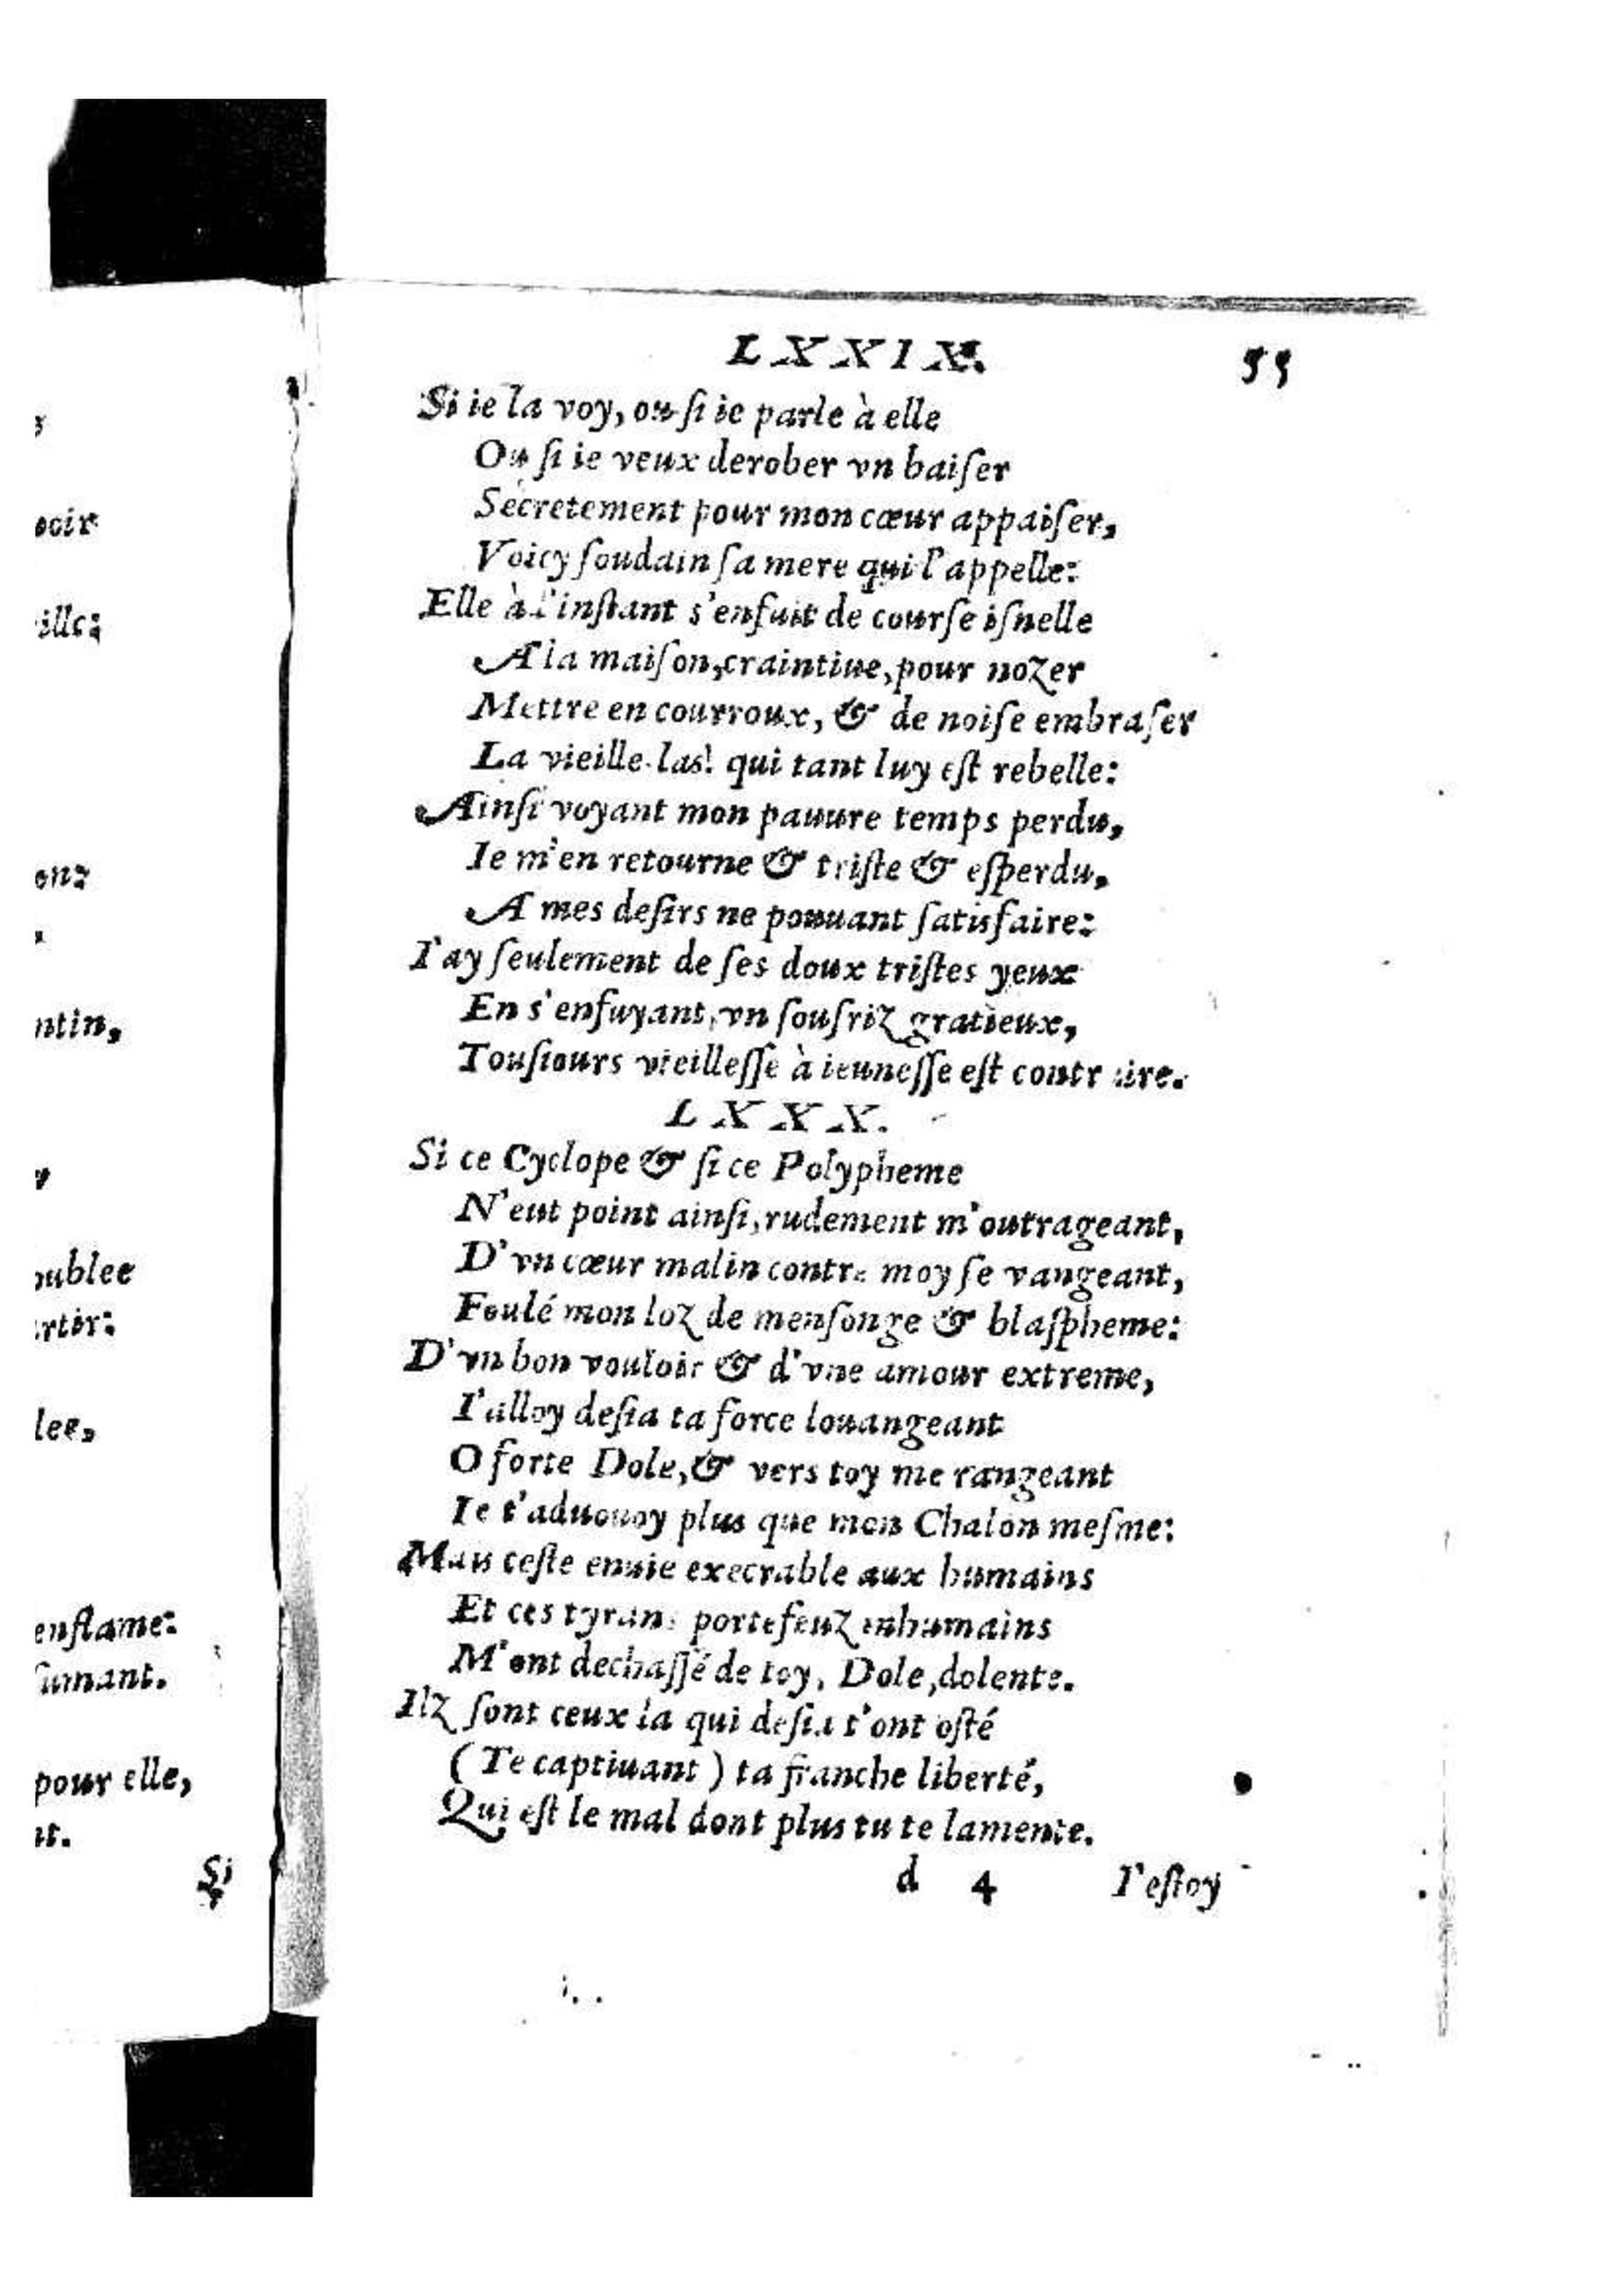 LXXIX. 55
Si ie la voy, ou ſi ie parle à elle
Ou ſi ie veux derober vn baiſer
Secretement pour mon cœur appaiſer,
Voicy ſoudain ſa mere qui l'appelle:
Elle à l'inſtant s'enfuit de courſe iſnelle
A la maiſon, craintiue, pour nozer
Mettre en courroux, & de noiſe embraſer
La vieille las! qui tant luy eſt rebelle:
Ainſi voyant mon pauure temps perdu,
Ie m'en retourne & triſte & eſperdu,
A mes deſirs ne pouuant ſatisfaire:
I'ay ſeulement de ſes doux triſtes yeux
En s'enfuyant, vn ſouſriz gratieux,
Touſiours vieilleſſe à ieuneſſe eſt contraire.
LXXX.
Si ce Cyclope & ſi ce Polypheme
N'eut point ainſi, rudement m'outrageant,
D'vn cœur malin contre moy ſe vangeant,
Foulé mon loz de menſonge & blaſpheme:
D'vn bon vouloir & d'vne amour extreme,
I'alloy deſia ta force louangeant
O forte Dole, & vers toy me rangeant
Ie t'aduouoy plus que mon Chalon meſme:
Mais ceſte enuie execrable aux humains
Et ces tyrans portefeuz inhumains
M'ont dechaſſé de toy, Dole, dolente.
Ilz ſont ceux la qui deſia t'ont oſté
(Te captiuant) ta franche liberté,
Qui eſt le mal dont plus tu te lamente.
d 4 I'eſtoy
ille:
ntin,
oublee
rtir:
lee,
enflame:
ſumant.
pour elle,
nt.
Si